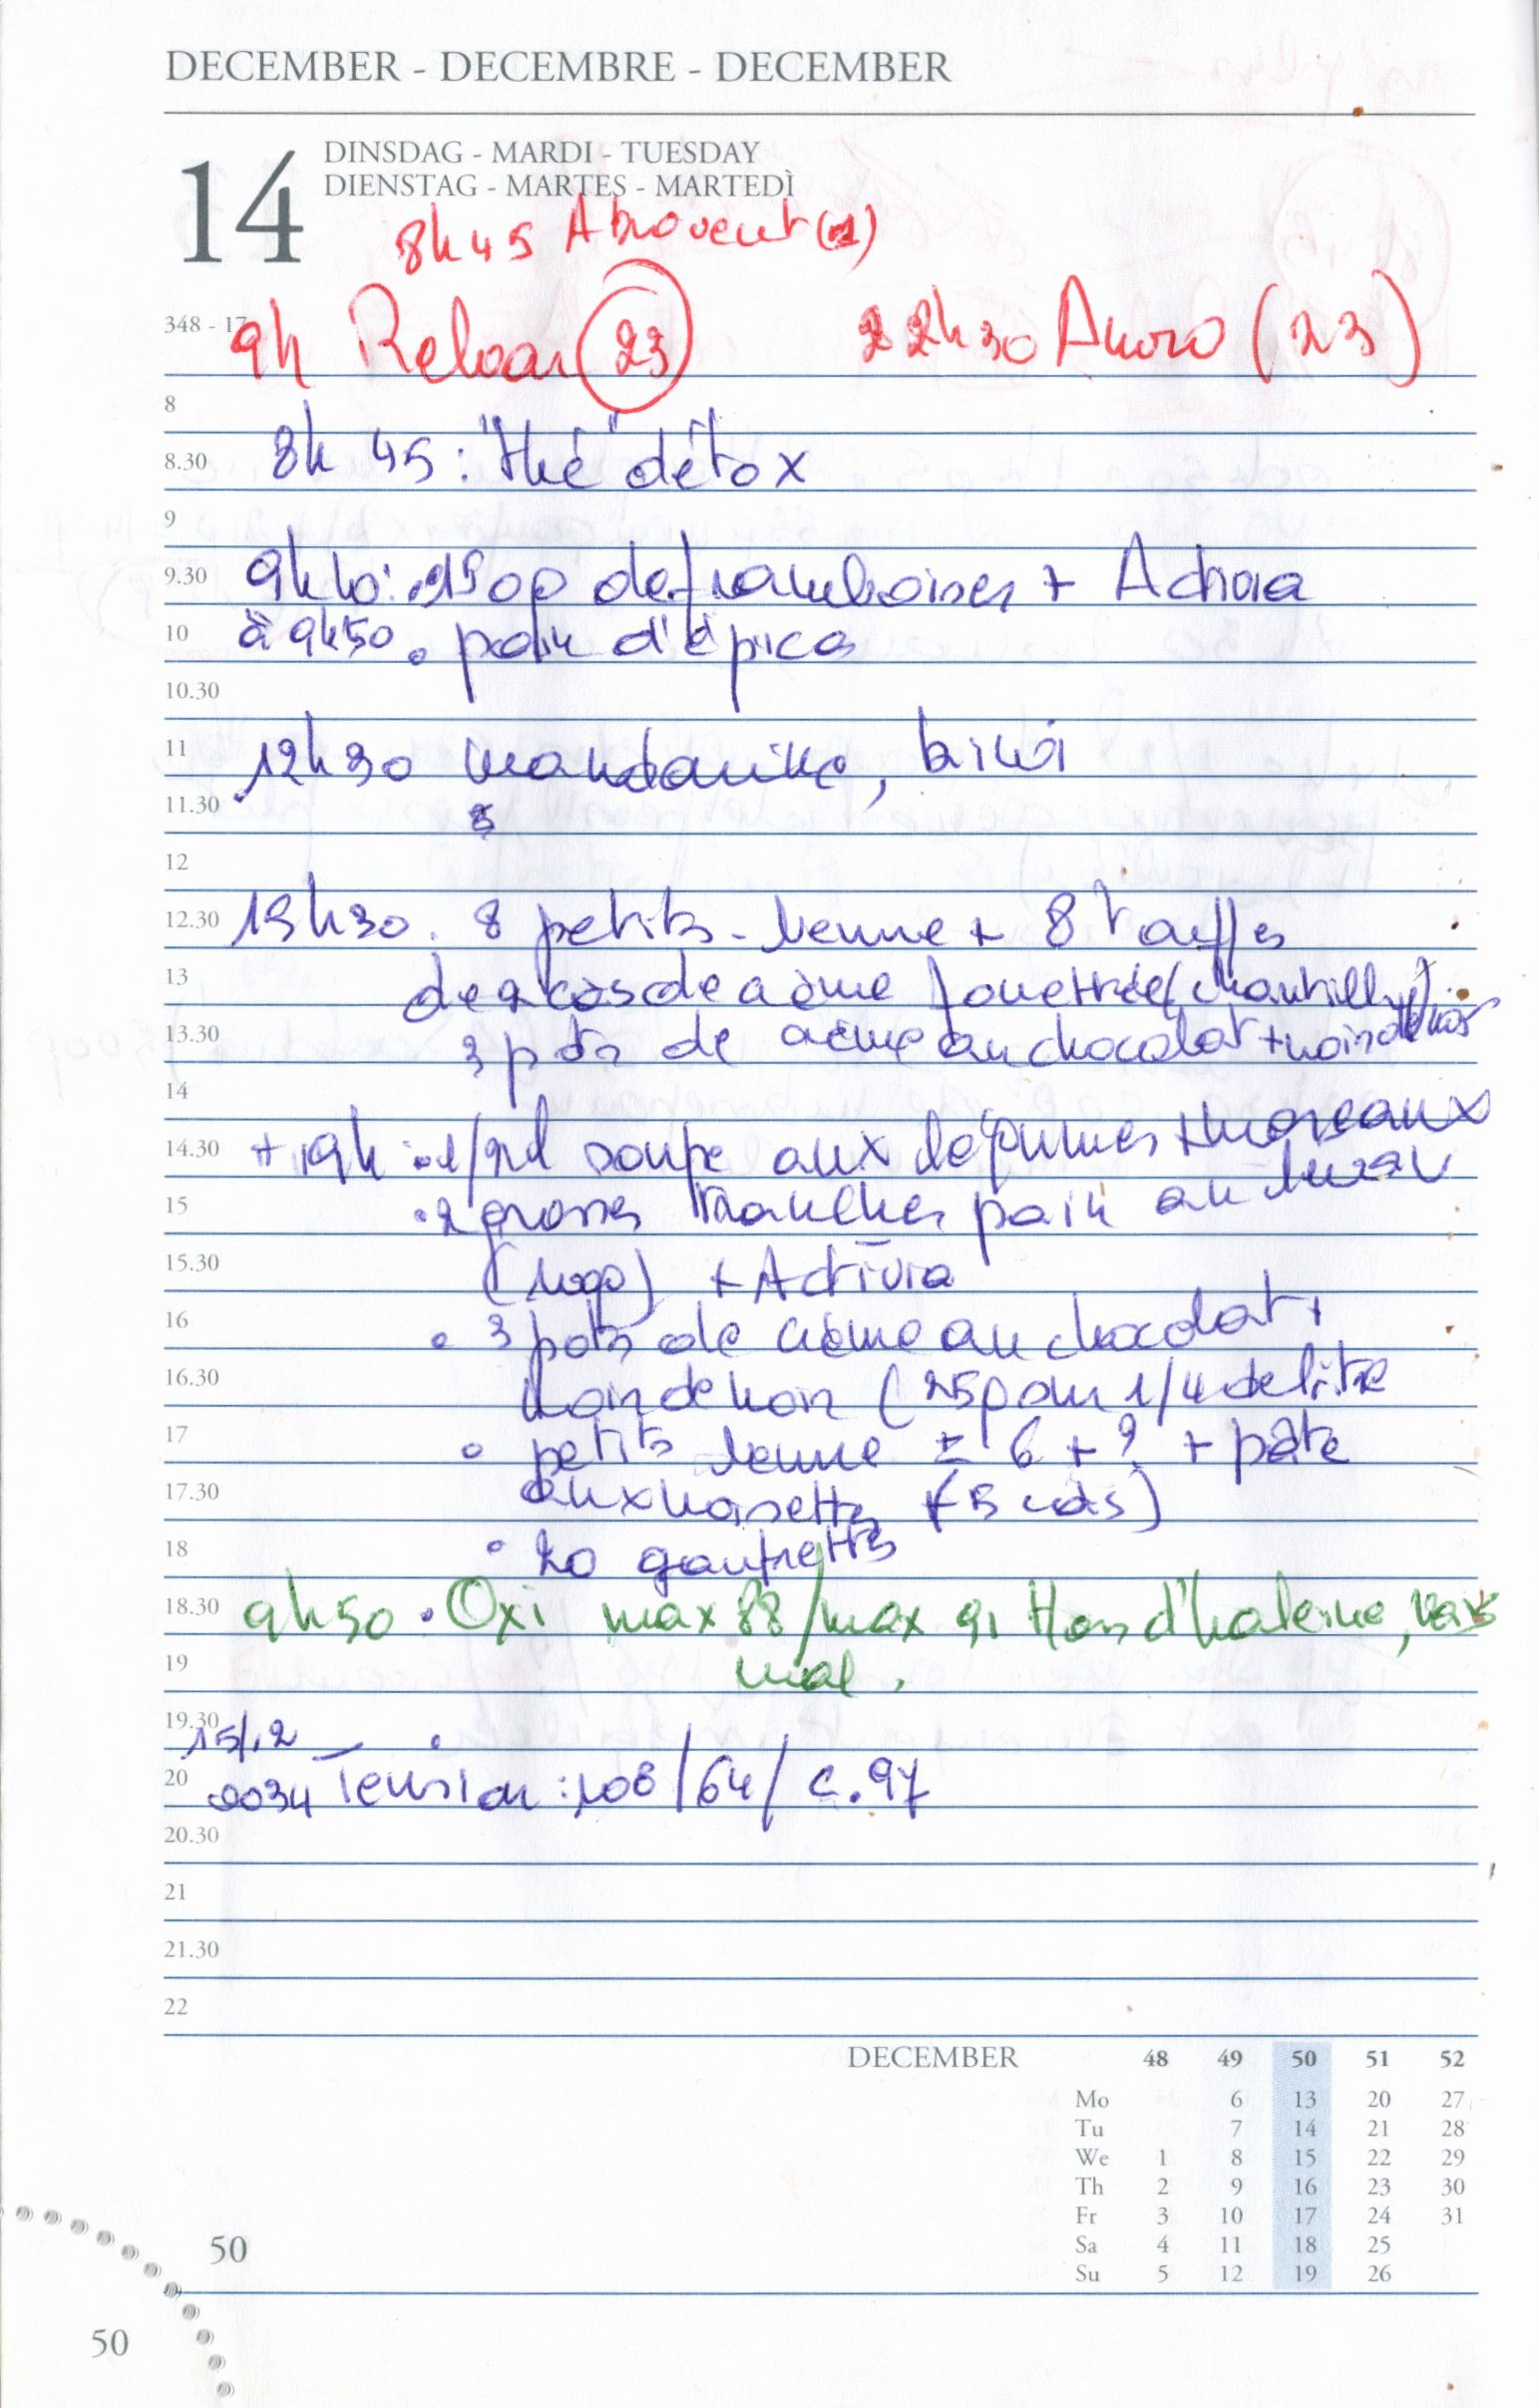 DECEMBER - DECEMBRE - DECEMBER
14
DINSDAG - MARDI - TUESDAY
DIENSTAG - MARTES - MARTEDÌ
8h45 Atrovent (1)
348 - 17
9h Relvar (23) 22h30 Anoro (23)
8
8.30 8h 45 : "thé" détox
9
9.30 9h10 : 150p de framboises + Activia
10 à 9h50 • pain d'épices
10.30
11 12h30 mandarine, kiwi
11.30
12
12.30 15h30 . 8 petits-beurre + 8
13 de 2 càs de crème fouettée (chantilly)
13.30 3 pots de crème au chocolat + noir de noir
14
14.30 + 19h : 1/2d soupe aux légumes + morceaux
15 • 2 grosses tranches pain au
15.30 + Activia
16 • 3 pots de crème au chocolat +
16.30 noir de noir (25p pour 1/4 de litre
17 • petits beurre ± 6 + ? + pâte
17.30 aux noisettes (+ 5 càs)
18 • 20 gaufrettes
18.30 9h50 • Oxi max 88/max 91 Hors d'haleine, vais
19 mal.
19.30 15/12
20 0034 Tension : 108/64/ c. 97
20.30
21
21.30
22
DECEMBER 48 49 50 51 52
Mo 6 13 20 27
Tu 7 14 21 28
We 1 8 15 22 29
Th 2 9 16 23 30
Fr 3 10 17 24 31
Sa 4 11 18 25
Su 5 12 19 26
50
50